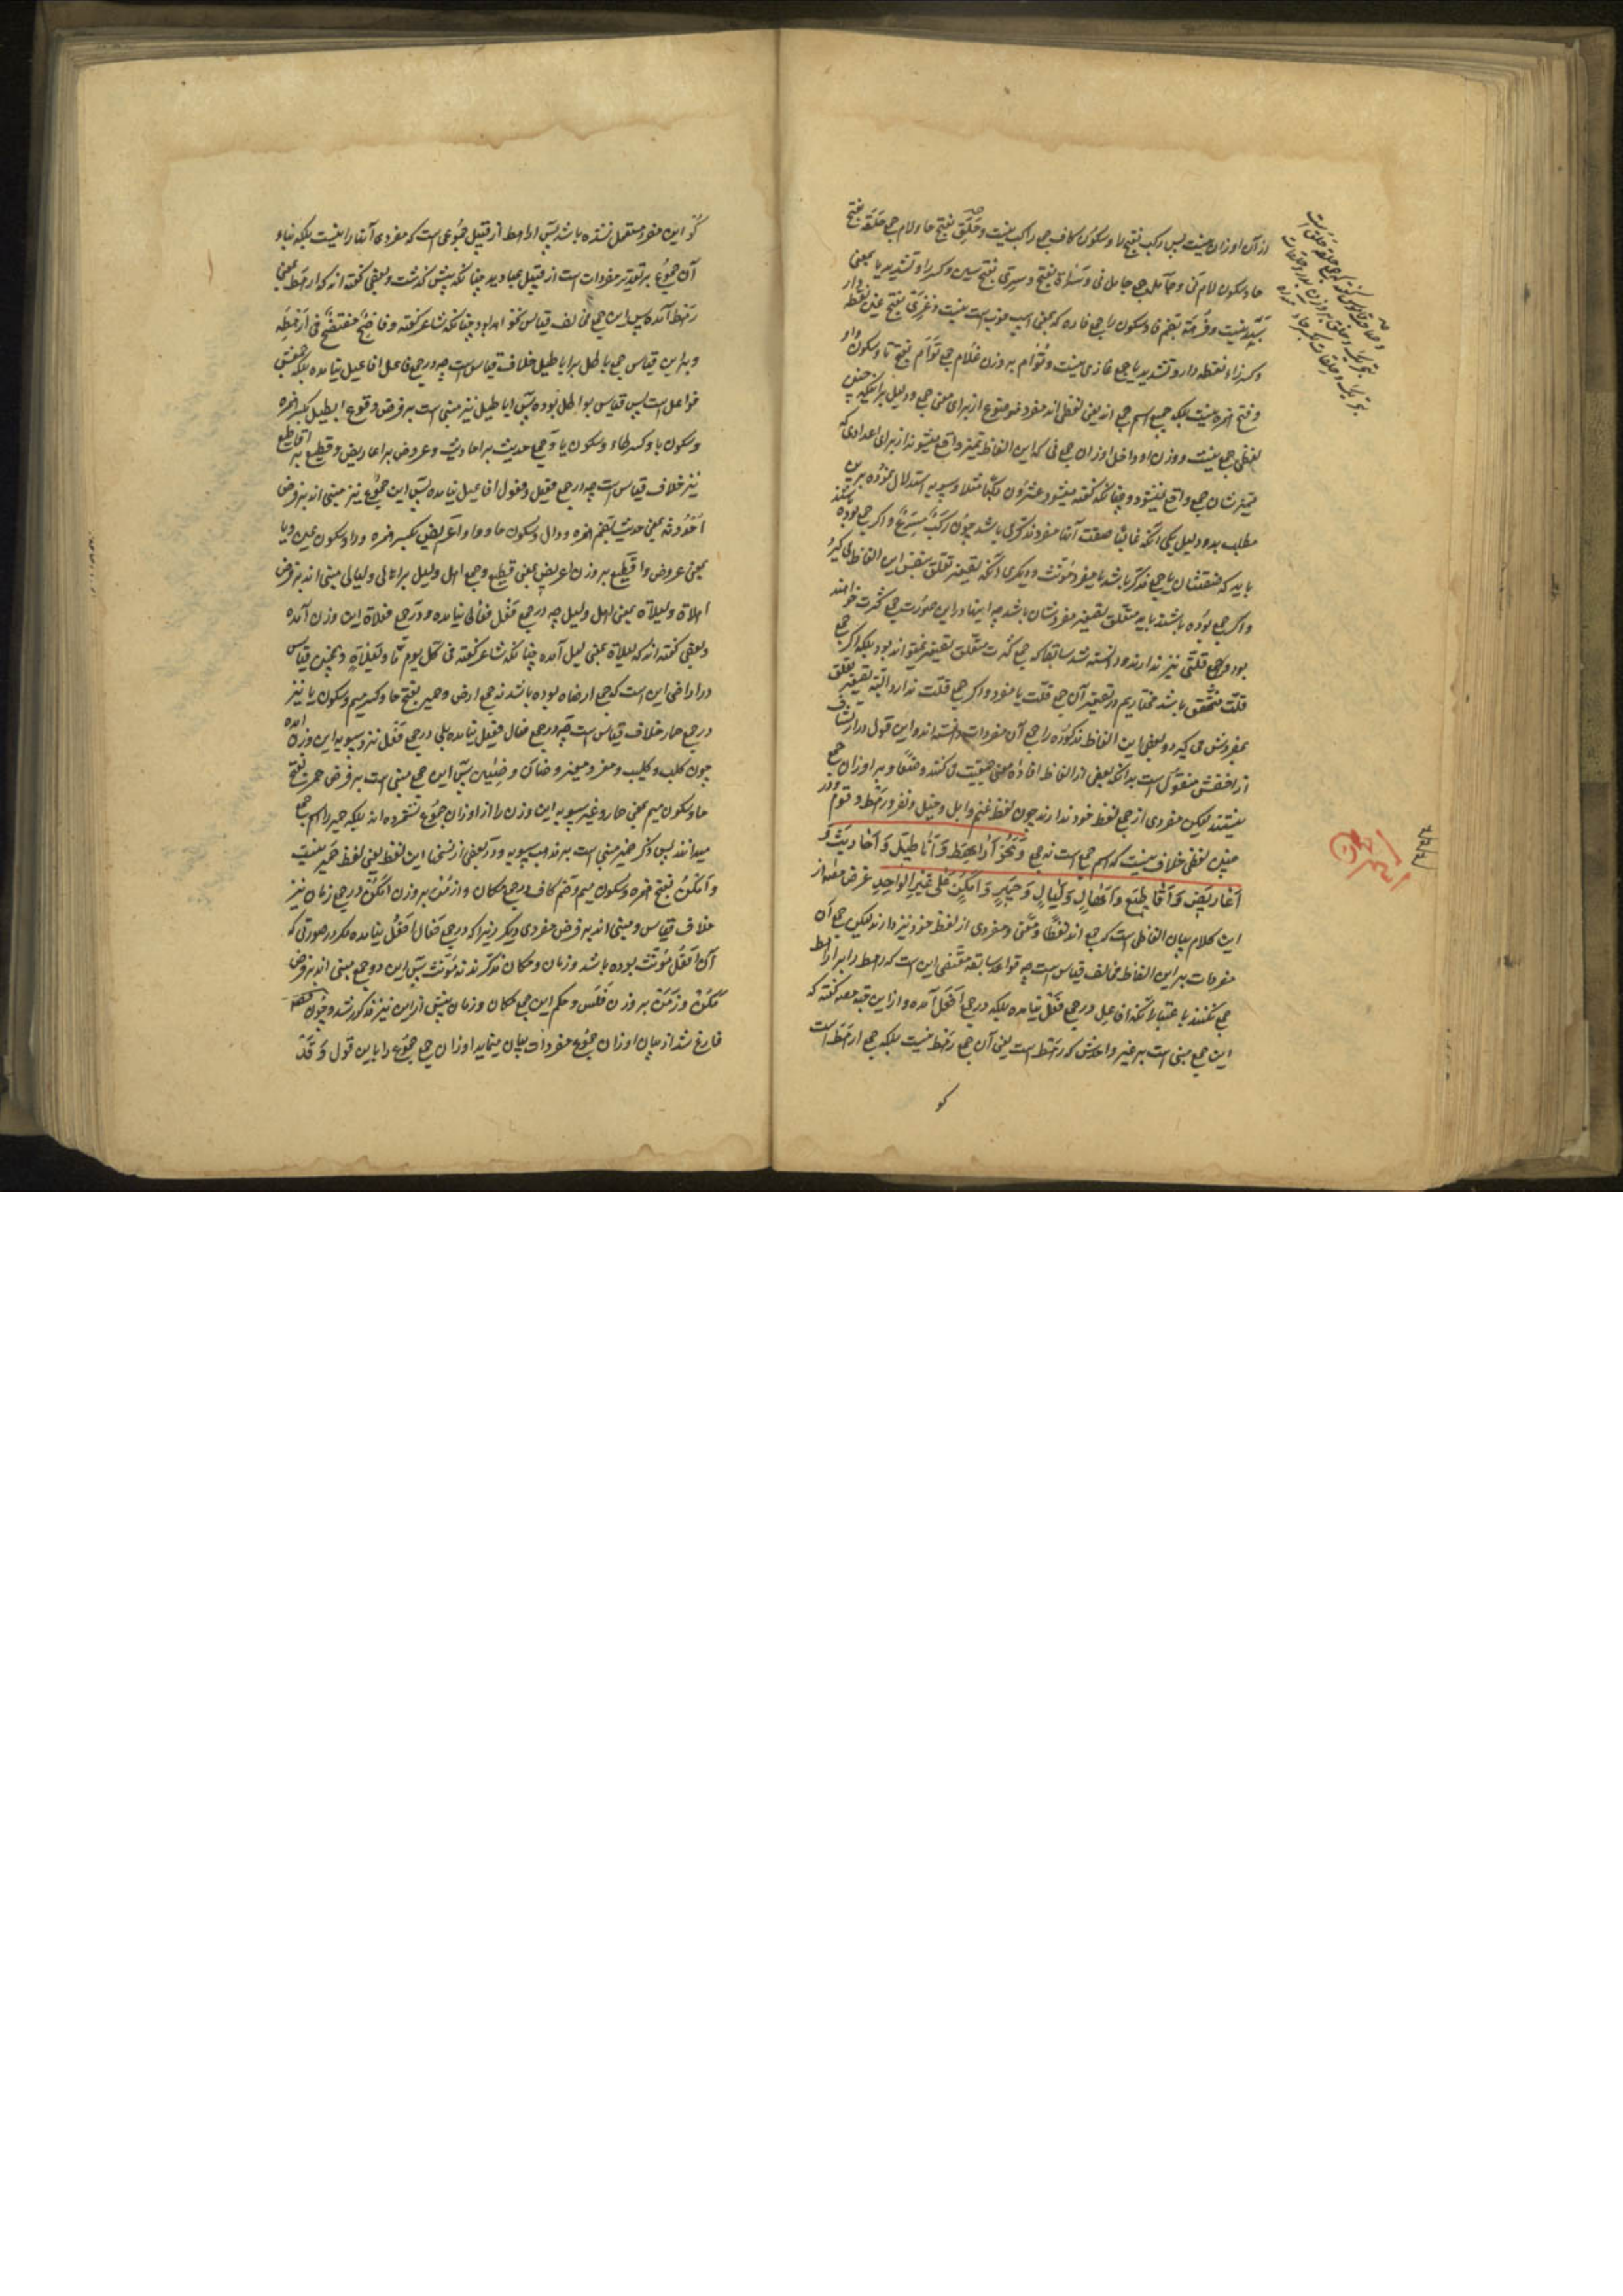 از آن اوزان نیست پس رکب بفتح را و سکون کاف جمع راکب نیست و حلق بفتح حا و لام جمع حلقه بفتح
حا و سکون لام نی و جامل جمع جامل نی و سراة بفتح و سری بفتح سین و کسر را و تشدید یا بمعنی
سید نیست و فرهة بضم فا و سکون را جمع فاره که بمعنی اسب خوب است نیست و غزی بفتح غین نقطه دار
و کسر زاء نقطه دار و تشدید یا جمع غازی نیست و تؤام بر وزن غلام جمع توأم بفتح تا و سکون واو
و فتح همزه نیست بلکه جمیع اسم جمع اند یعنی لفظی اند مفرد موضوع از برای معنی جمع و دلیل بر اینکه چنین
لفظی جمع نیست و وزن او داخل اوزان جمع نی که این الفاظ تمیز واقع میشوند از برای اعدادی که
تمیزشان جمع واقع نمیشود چنانکه گفته میشود عشرون رکبا مثلا و سیبویه استدلال نموده برین
مطلب بدو دلیل یکی آنکه غالبا صفت آنها مفرد مذکری باشد چون رکب مسرع و اگر جمع بوده باشند
باید که صفتشان یا جمع مذکر باشد یا مفرد مؤنث و دیگری آنکه تصغیر تعلق بنفس این الفاظ می گیرد
و اگر جمع بوده باشند باید متعلق بتصغیر مفردشان باشد چه اینها در این صورت جمع کثرت خواهند
بود و جمع قلتی نیز ندارند و دانسته شد سابقا که جمع کثرت متعلق تصغیر نمیتواند بود بلکه اگر جمع
قلت متحقق باشد مختاریم در تصغیر آن جمع قلت یا مفرد و اگر جمع قلت ندارد البته تصغیر تعلق
بمفردش می گیرد و بعضی این الفاظ مذکوره را جمع آن مفردات دانسته اند و این قول در ارتشاف
از اخفش منقول است بدانکه بعضی از الفاظ افاده معنی جمعیت می کنند وضعا و بر اوزان جمع
نیستند لیکن مفردی از جمع لفظ خود ندارند چون لفظ غنم و ابل و خیل و نفر و رهط و قوم و در
چنین لفظی خلاف نیست که اسم جمع است نه جمع و نحو أراهط و أباطیل و أحادیث و
أعاریض و أقاطیع و أهال و لیال و حمیر و أمکن علی غیر الواحد غرض مصنف از
این کلام بیان الفاظی است که جمع اند لفظا و معنی و مفردی از لفظ خود نیز دارند لیکن جمع آن
مفردات بر این الفاظ مخالف قیاس است چه قواعد سابقه مقتضی این است که رهط را بر اراهط
جمع نکنند باعتبار آنکه افاعل در جمع فعل نیامده بلکه در جمع أفعل آمده و از این جهة مصنف گفته که
این جمع مبنی است بر غیر واحدش که رهط است یعنی آن جمع رهط نیست بلکه جمع ارهط است
کو
کو این مفرد مستعمل نشده باشد پس اراهط از قبیل جموعی است که مفردی آنها را نیست بلکه بناء
آن جموع بر تقدیر مفردات است از قبیل عبادید چنانکه پیش گذشت و بعضی گفته اند که ارهط بمعنی
رهط آمده پس این جمع مخالف قیاس نخواهد بود چنانکه شاعر گفته و فاضح مفتضح فی أرهطه
و بر این قیاس جمع باطل بر اباطیل خلاف قیاس است چه در جمع فاعل افاعیل نیامده بلکه جمعش
فواعل است پس قیاس بواطل بوده پس اباطیل نیز مبنی است بر فرض وقوع ابطیل بکسر همزه
و سکون با و کسر طاء و سکون یا و جمع حدیث بر احادیث و عروض بر اعاریض و قطیع بر اقاطیع
نیز خلاف قیاس است چه در جمع فعیل و فعول افاعیل نیامده پس این جموع نیز مبنی اند بر فرض
أحدوثه بمعنی حدیث بضم همزه و دال و سکون حا و واو و اعریض بکسر همزه و را و سکون عین و یا
بمعنی عروض و اقطیع بر وزن اعریض بمعنی قطیع و جمع اهل و لیل بر اهالی و لیالی مبنی اند بر فرض
اهلاة و لیلاة بمعنی اهل و لیل چه در جمع فعل فعالی نیامده و در جمع فعلاة این وزن آمده
و بعضی گفته اند که لیلاة بمعنی لیل آمده چنانکه شاعر گفته فی کل یوم ما و لیلاة و همچنین قیاس
در اراضی این است که جمع ارضاه بوده باشد نه جمع ارض و حمیر بفتح حا و کسر میم و سکون یا نیز
در جمع حمار خلاف قیاس است چه در جمع فعال فعیل نیامده بلی در جمع فعل نزد سیبویه این وزن آمده
چون کلب و کلیب و معز و معیز و ضأن و ضئین پس این جمع مبنی است بر فرض حمر بفتح
حا و سکون میم بمعنی حمار و غیر سیبویه این وزن را از اوزان جموع نشمرده اند بلکه حمیر را اسم جمع
میدانند پس ذکر حمیر مبنی است بر مذهب سیبویه و در بعضی از نسخها این لفظ یعنی لفظ حمیر نیست
و أمکن بفتح همزه و سکون میم و ضم کاف در جمع مکان و ازمن بر وزن امکن در جمع زمان نیز
خلاف قیاس و مبنی اند بر فرض مفردی دیگر زیرا که در جمع فعال أفعل نیامده مگر در صورتی که
آن أفعل مؤنث بوده باشد و زمان و مکان مذکرند نه مؤنث پس این دو جمع مبنی اند بر فرض
مکن و زمن بر وزن فلس و حکم این جمع مکان و زمان پیش از این نیز مذکور شد و چون مصنف
فارغ شد از بیان اوزان جموع مفردات بیان مینماید اوزان جمع جموع را باین قول و قد